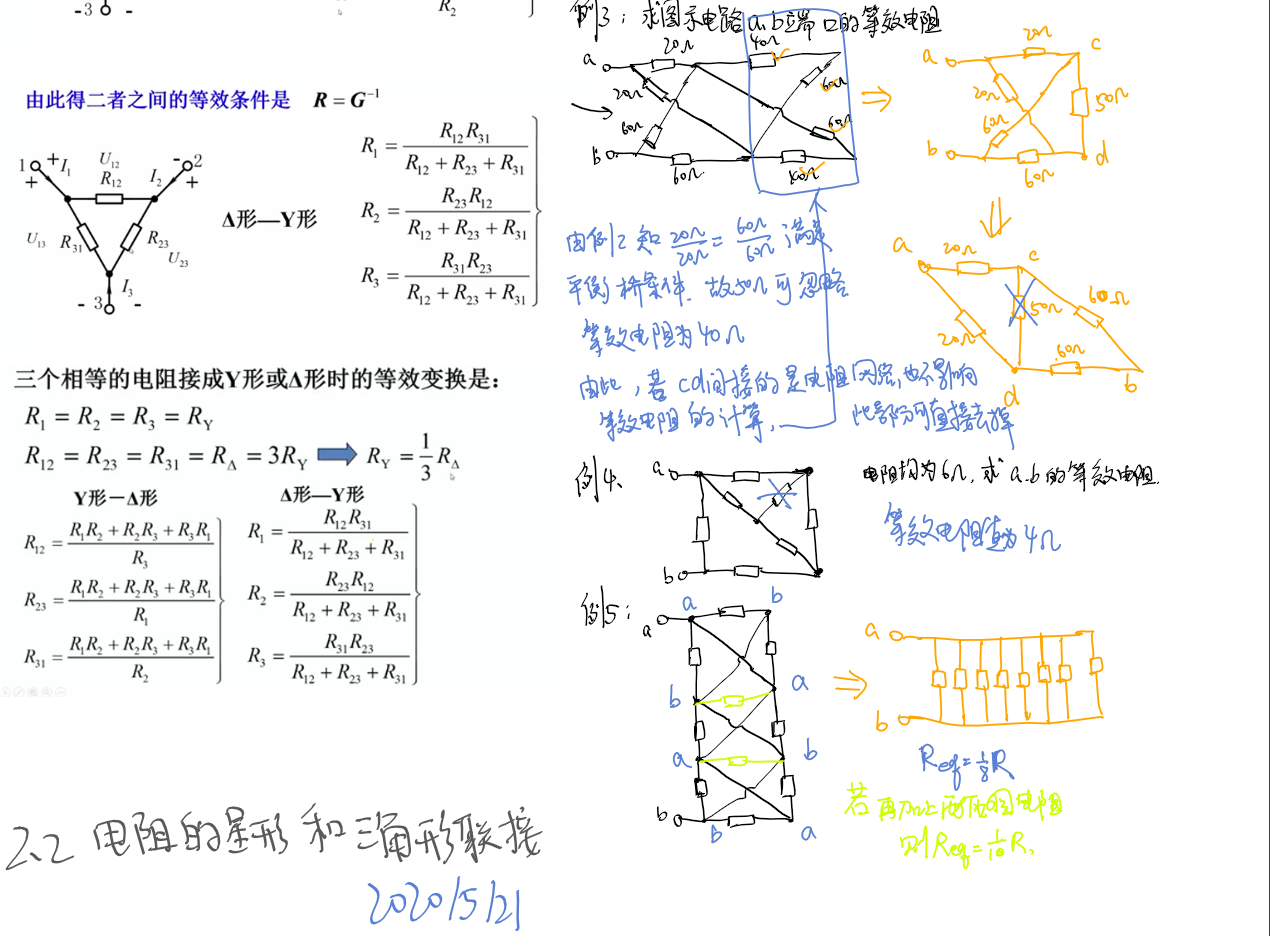 -3
R₂
由此得二者之间的等效条件是 R = G⁻¹
1 + I₁ U₁₂ R₁₂ I₂ - 2
+ +
U₁₃ R₃₁ R₂₃ U₂₃
I₃
- 3 -
Δ形—Y形
R₁ = R₁₂R₃₁ / (R₁₂ + R₂₃ + R₃₁)
R₂ = R₂₃R₁₂ / (R₁₂ + R₂₃ + R₃₁)
R₃ = R₃₁R₂₃ / (R₁₂ + R₂₃ + R₃₁)
三个相等的电阻接成Y形或Δ形时的等效变换是：
R₁ = R₂ = R₃ = R_Y
R₁₂ = R₂₃ = R₃₁ = R_Δ = 3R_Y R_Y = 1/3 R_Δ
Y形－Δ形
R₁₂ = (R₁R₂ + R₂R₃ + R₃R₁) / R₃
R₂₃ = (R₁R₂ + R₂R₃ + R₃R₁) / R₁
R₃₁ = (R₁R₂ + R₂R₃ + R₃R₁) / R₂
Δ形—Y形
R₁ = R₁₂R₃₁ / (R₁₂ + R₂₃ + R₃₁)
R₂ = R₂₃R₁₂ / (R₁₂ + R₂₃ + R₃₁)
R₃ = R₃₁R₂₃ / (R₁₂ + R₂₃ + R₃₁)
2.2 电阻的星形和三角形联接
2020/5/21
例3：求图示电路a.b端口的等效电阻
a 20Ω 40Ω
20Ω 60Ω
60Ω 60Ω
b 60Ω
a 20Ω c
20Ω 50Ω
60Ω
b 60Ω d
a 20Ω c
50Ω 60Ω
20Ω 60Ω
d b
由例2知 20Ω/20Ω = 60Ω/60Ω 满足
平衡桥条件．故50Ω可忽略
等效电阻为40Ω
由此，若cd间接的是电阻网络，也不影响
等效电阻的计算，此部分可直接去掉
例4、
a
b
电阻均为6Ω，求a.b的等效电阻．
等效电阻值为4Ω
例5：
a a b
b a
a b
b b a
a
b
Req=1/8R
若再加上两个电阻
则Req=1/10R．